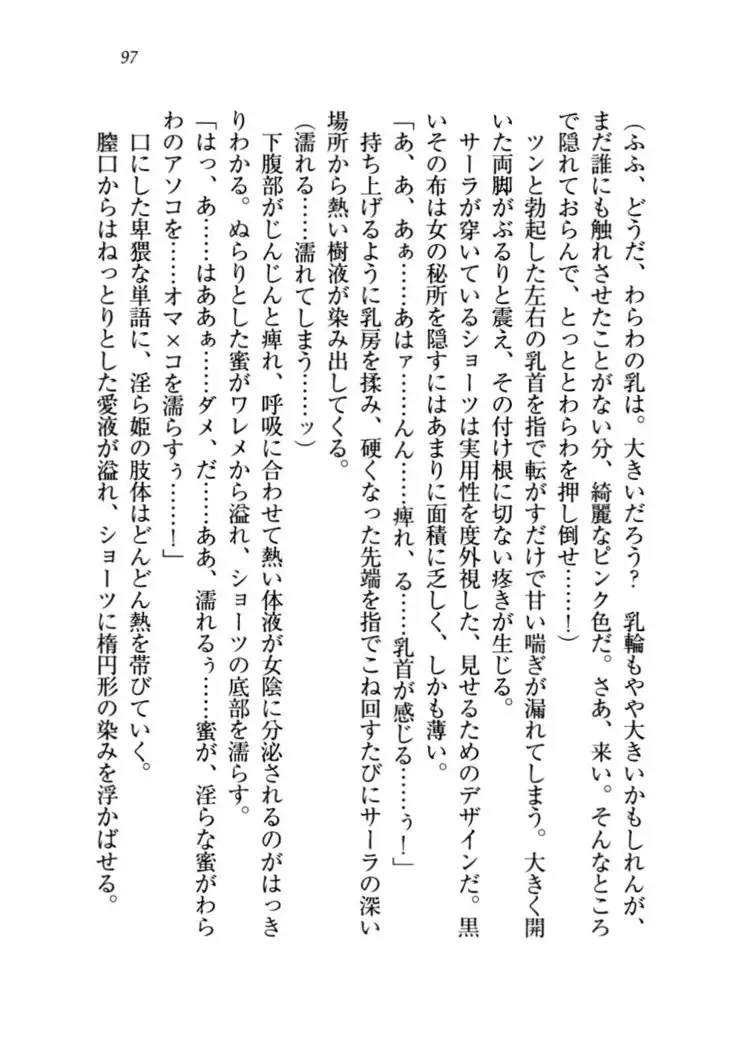 97
（ふふ、どうだ、わらわの乳は。大きいだろう？　乳輪もやや大きいかもしれんが、
まだ誰にも触れさせたことがない分、綺麗なピンク色だ。さあ、来い。そんなところ
で隠れておらんで、とっととわらわを押し倒せ……！）
ツンと勃起した左右の乳首を指で転がすだけで甘い喘ぎが漏れてしまう。大きく開
いた両脚がぶるりと震え、その付け根に切ない疼きが生じる。
サーラが穿いているショーツは実用性を度外視した、見せるためのデザインだ。黒
いその布は女の秘所を隠すにはあまりに面積に乏しく、しかも薄い。
「あ、あ、あぁ……あはァ……んん……痺れ、る……乳首が感じる……ぅ！」
持ち上げるように乳房を揉み、硬くなった先端を指でこね回すたびにサーラの深い
場所から熱い樹液が染み出してくる。
（濡れる……濡れてしまう……ッ）
下腹部がじんじんと痺れ、呼吸に合わせて熱い体液が女陰に分泌されるのがはっき
りわかる。ぬらりとした蜜がワレメから溢れ、ショーツの底部を濡らす。
「はっ、あ……はああぁ……ダメ、だ……ああ、濡れるぅ……蜜が、淫らな蜜がわら
わのアソコを……オマ×コを濡らすぅ……！」
口にした卑猥な単語に、淫ら姫の肢体はどんどん熱を帯びていく。
膣口からはねっとりとした愛液が溢れ、ショーツに楕円形の染みを浮かばせる。